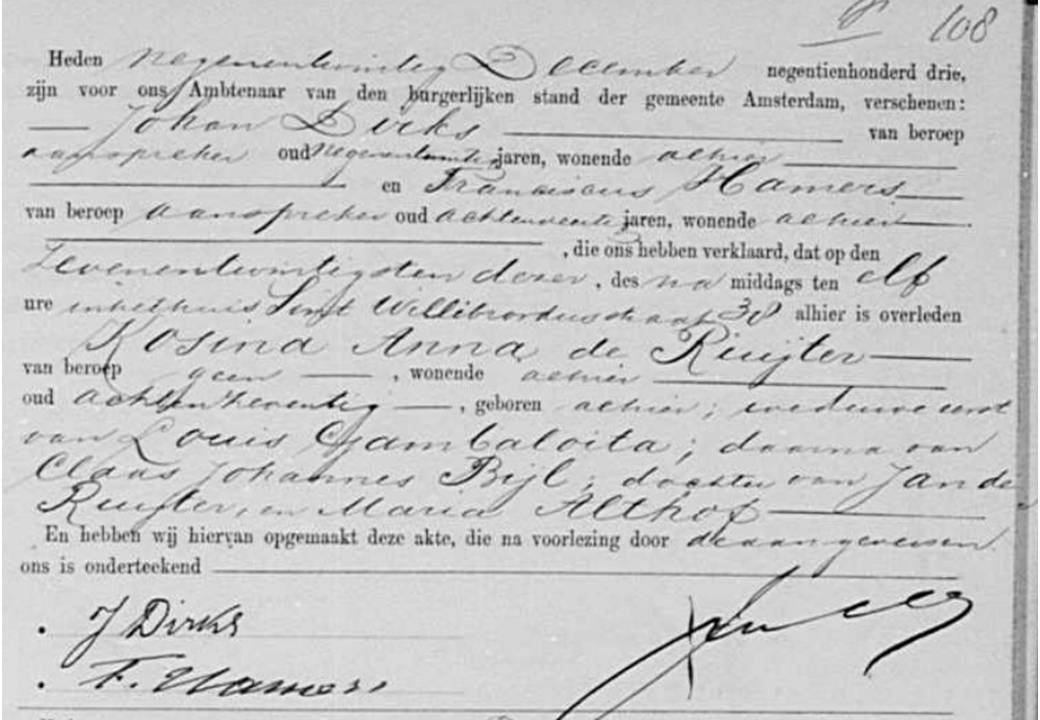 108
Heden negenentwintig December negentienhonderd drie,
zijn voor ons Ambtenaar van den burgerlijken stand der gemeente Amsterdam, verschenen:
Johan Dirks van beroep
aanspreker oud negenentwintig jaren, wonende alhier
en Franciscus Hamers
van beroep aanspreker oud jaren, wonende alhier
, die ons hebben verklaard, dat op den
Zevenentwintigsten dezer, des na middags ten elf
ure in het huis Sint Willibrordusstraat 30 alhier is overleden
Rosina Anna de Ruijter
van beroep geen , wonende alhier
oud achtenzeventig , geboren alhier; weduwe eerst
van Louis Gambaloita; daarna van
Claas Johannes Bijl; dochter van Jan de
Ruijter, en Maria Althof
En hebben wij hiervan opgemaakt deze akte, die na voorlezing door de aangevers en
ons is onderteekend
J Dirks
F. Hamers